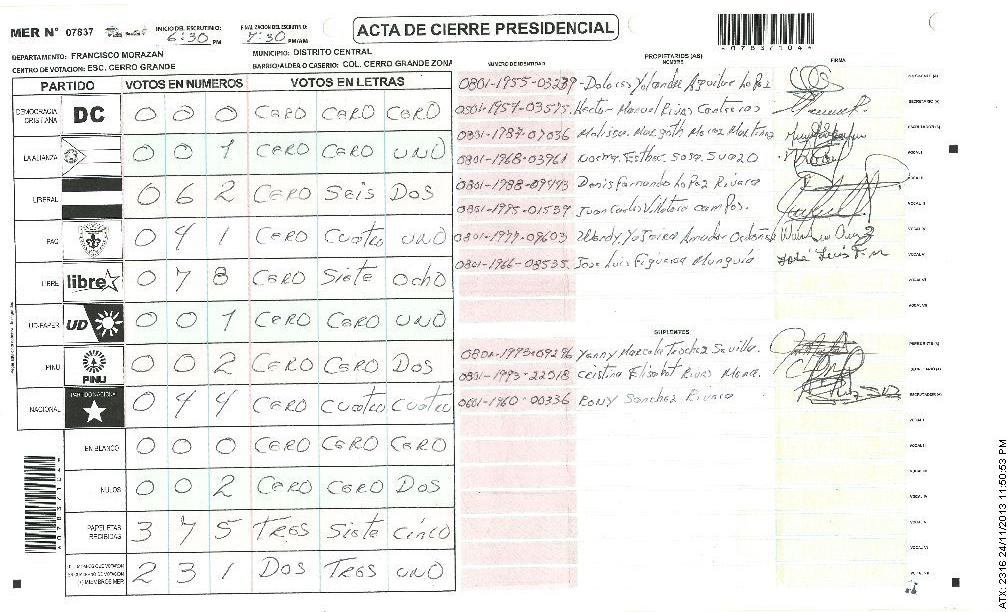 MER N° 07837 INICIO DEL ESCRUTINIO: 6:30 PM FINALIZACION DEL ESCRUTINIO: 7:30 PM/AM ACTA DE CIERRE PRESIDENCIAL
DEPARTAMENTO: FRANCISCO MORAZAN MUNICIPIO: DISTRITO CENTRAL
CENTRO DE VOTACION: ESC. CERRO GRANDE BARRIO/ALDEA O CASERIO: COL. CERRO GRANDE ZONA
PARTIDO VOTOS EN NUMEROS VOTOS EN LETRAS
DEMOCRACIA CRISTIANA DC 0 0 0 CERO CERO CERO
LA ALIANZA 0 0 1 CERO CERO UNO
LIBERAL 0 6 2 CERO SEIS DOS
PAC 0 4 1 CERO CUATRO UNO
LIBRE libre 0 7 8 CERO SIETE OCHO
UD-FAPER UD 0 0 1 CERO CERO UNO
PINU PINU 0 0 2 CERO CERO DOS
NACIONAL PARTIDO NACIONAL 0 4 4 CERO CUATRO CUATRO
EN BLANCO 0 0 0 CERO CERO CERO
NULOS 0 0 2 CERO CERO DOS
PAPELETAS RECIBIDAS 3 7 5 TRES SIETE CINCO
2 3 1 DOS TRES UNO
PROPIETARIOS (AS)
NUMERO DE IDENTIDAD NOMBRE FIRMA
0801-1955-03239 Dolores Yolanda Aguilar Lopez
0801-1957-03575 Hector Manuel Rivas Contreras
0801-1987-07036 Melissa Margoth Meraz Martinez
0801-1968-03961 Norma Esther Sosa Suazo
0801-1988-09493 Denis Fernando Lopez Rivera
0801-1995-01539 Juan Carlos Villatoro Campos.
0801-1977-09603 Wendy Yojaira Amador Ordoñez
0801-1966-08535. Jose Luis Figueroa Munguia José Luis F. M
SUPLENTES
0801-1993-09296 Yenny Marcela Trochez Sevilla.
0801-1993-22318 Cristina Elizabet Rivas Meraz.
0801-1960-00336 Rony Sanchez Rivera
ATX: 2316 24/11/2013 11:50:53 PM